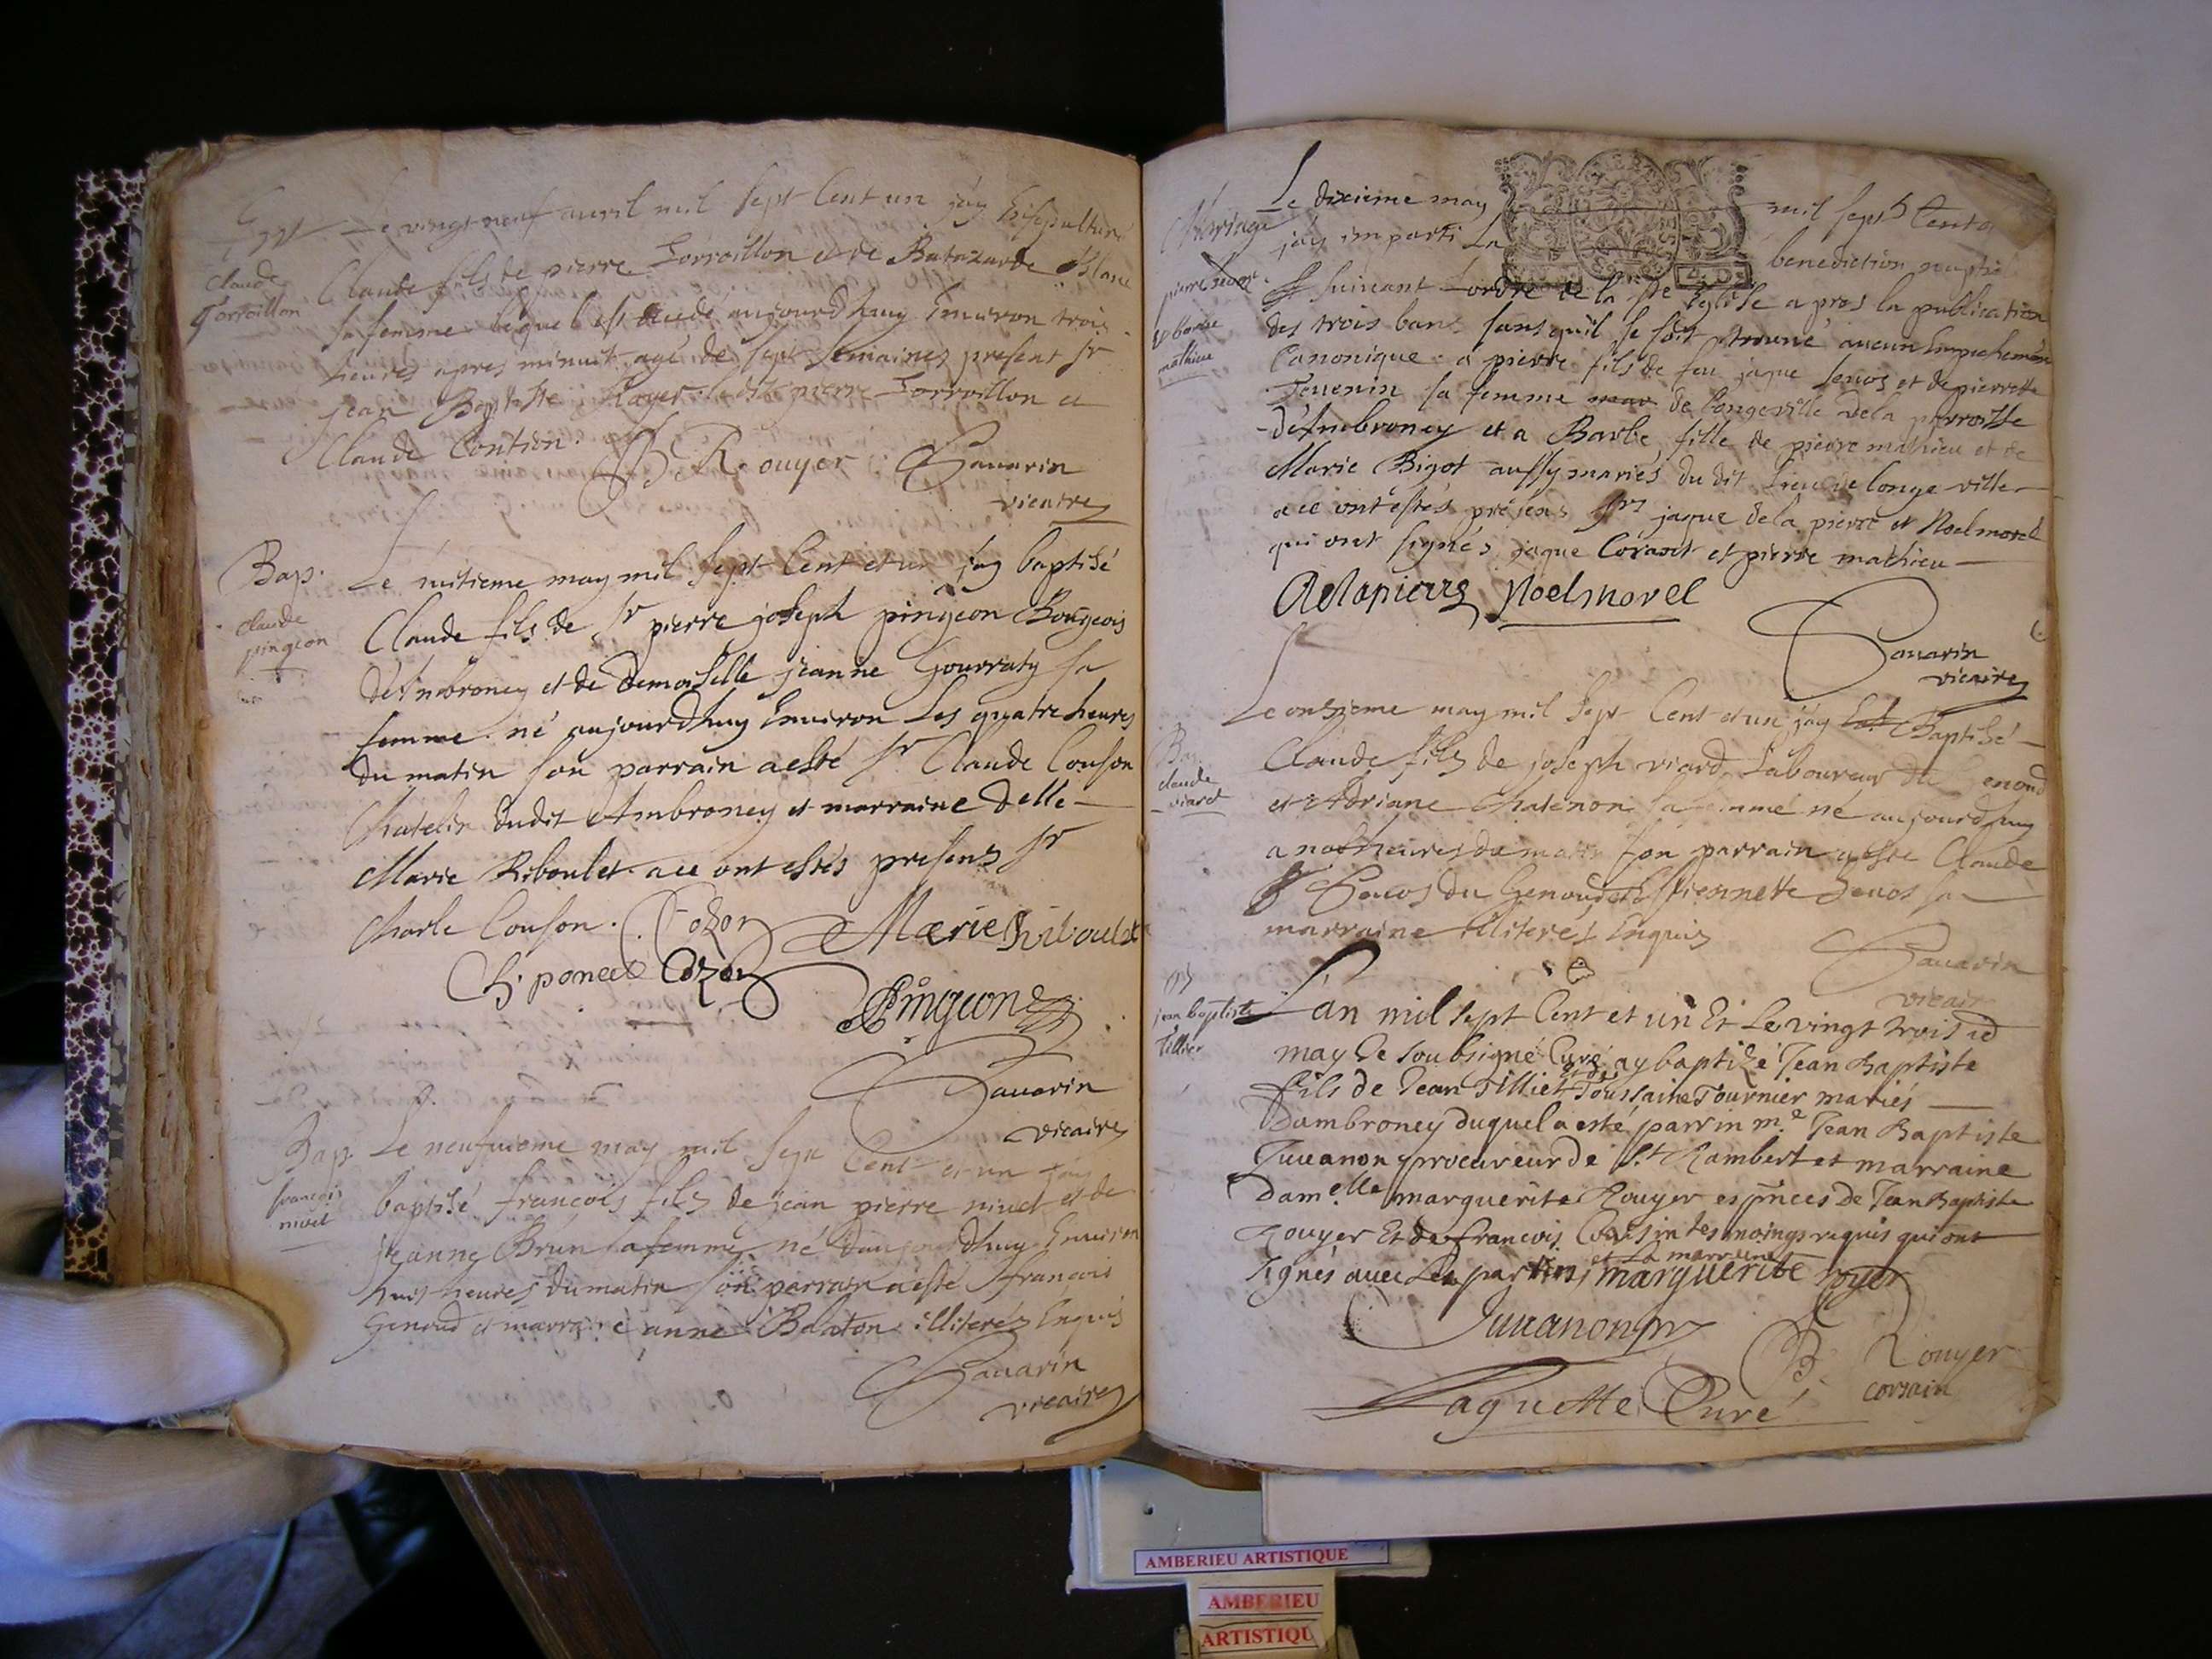 Le vingt neuf avril mil sept Cent un j'ay Ensepulturé
Claude
Torroillon
Claude fils de pierre Torroillon et de Batazarde Blanc
sa femme lequel est decedé aujourdhuy Environ trois
heures apres minuit agé de sept semaines present sr
jean Baptiste Royer ledit pierre Torroillon et
Claude Contion.
B Rouyer Savarin
vicaire
Bap.
claude
pingeon
Le uitieme may mil sept Cent et un j'ay baptisé
Claude fils de sr pierre joseph pingeon Bourgeois
d'Ambroney et de Demoiselle jeanne Gourraty sa
femme né aujourdhuy Environ Les quatre heures
du matin son parrain a esté sr Claude Couson
Chatelin dudit Ambroney et marraine Delle
Marie Riboulet a ce ont estés presens sr
Charle Couson. Cozon Marie Riboulet
Cozon
Pingeon
Savarin
vicaire
Bap
francois
nivet
Le neufvieme may mil sept Cent et un j'ay
baptisé francois fils de jean pierre nivet et de
jeanne Brun sa femme né d'aujourdhuy Environ
huit heures du matin son parrain a esté francois
Genoud et marraine anne Balaton illiterés Enquis
Savarin
vicaire
Mariage
pierre Sevoz
et barbe
mathieu
Le dixieme may mil sept Cent
j'ay imparti La benediction nuptial
suivant Lordre de la ste Eglise apres la publication
des trois bans sans qu'il se soit trouvé aucun Empechement
Canonique a pierre fils de feu jaque Sevos et de pierrette
Tevenin sa femme de Longeville de la parroisse
d'Ambroney et a Barbe fille de pierre mathieu et de
Marie Bigot aussy mariés du dit Lieu de Longe ville
a ce ont estés présens srs jaque dela pierre et Noel morel
qui ont signés jaque Coraort et pierre mathieu
Delapierre Noel morel
Savarin
vicaire
Bap
claude
viard
Le onzieme may mil sept Cent et un j'ay Baptisé
Claude fils de joseph viard Laboureur du Genoud
et Adriane Chatenon sa femme né aujourdhuy
a neuf heures du matin son parrain a esté Claude
Sevos du Genoud et Estiennette Sevos sa
marraine illiterés Enquis
Savarin
vicair
jean baptiste
Tillier
L'an mil sept Cent et un Et Le vingt trois de
may Je soubsigné Curé ay baptizé Jean Baptiste
fils de Jean Tillier et de Toussaine Tournier mariés
Dambroney duquel a esté parrin m.e Jean Baptiste
Juvanon procureur de St Rambert et marraine
Dam.elle marguerite Rouyer es pnces de Jean Baptiste
Rouyer Et de francois Corsin tesmoings requis qui ont
signés avec Le parrin et La marrine marguerite royer
Juvanon
B Rouyer
corsain
Laguette Curé
AMBERIEU ARTISTIQUE
AMBERIEU
ARTISTIQU